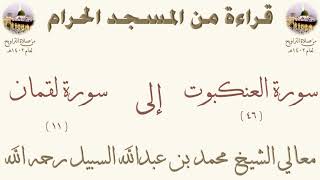 قراءة من المسجد الحرام
من صلاة التراويح
لعام ١٤٠٢هـ
من صلاة التراويح
لعام ١٤٠٢هـ
سورة العنكبوت إلى سورة لقمان
(٤٦) (١١)
معالي الشيخ محمد بن عبدالله السبيل رحمه الله